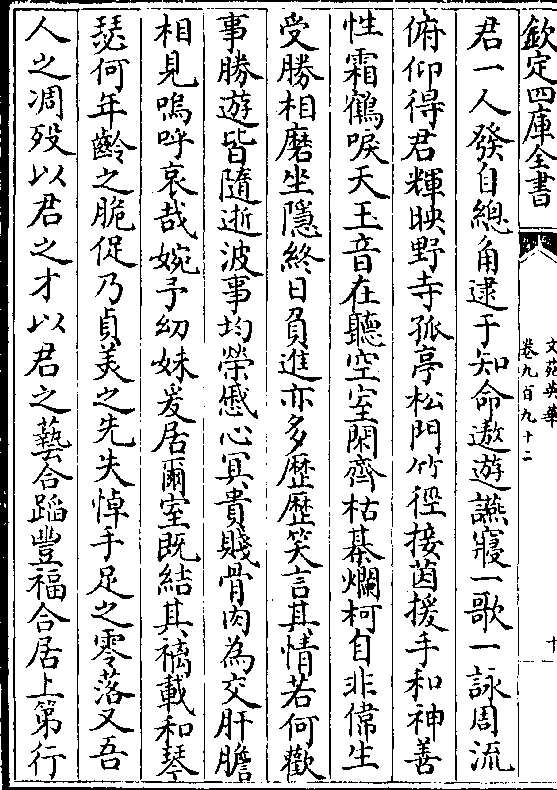 欽定四庫全書
文苑英華
卷九百九十二
十
君一人發自總角逮于知命遨遊讌寢一歌一詠周流
俯仰得君輝映野寺孤亭松門竹徑接茵援手和神善
性霜鶴唳天玉音在聽空室閑齋枯棊爛柯自非偉生
受勝相磨坐隱終日負進亦多歴歴笑言其情若何歡
事勝遊皆隨逝波事均榮慼心冥貴賤骨肉為交肝膽
相見嗚呼哀哉婉予幼妹爰居爾室既結其褵載和琴
瑟何年齡之脆促乃貞美之先失悼手足之零落又吾
人之凋歿以君之才以君之藝合蹈豐福合居上第行